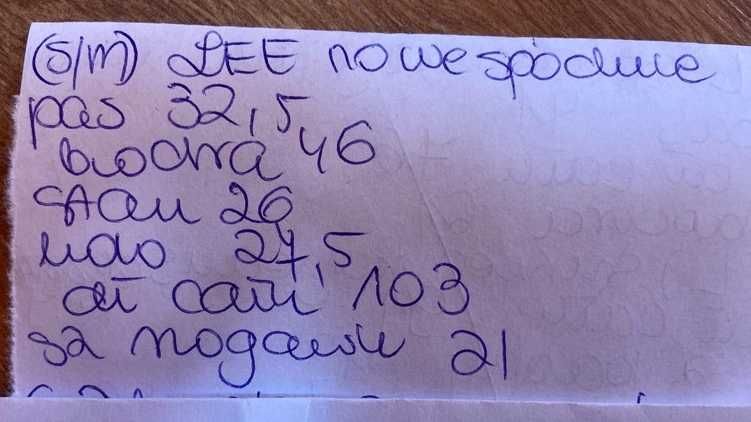 (S/M) LEE nowe spodnie
pas 32,5
biodra 46
stan 26
udo 27,5
dł całk 103
sz nogawki 21